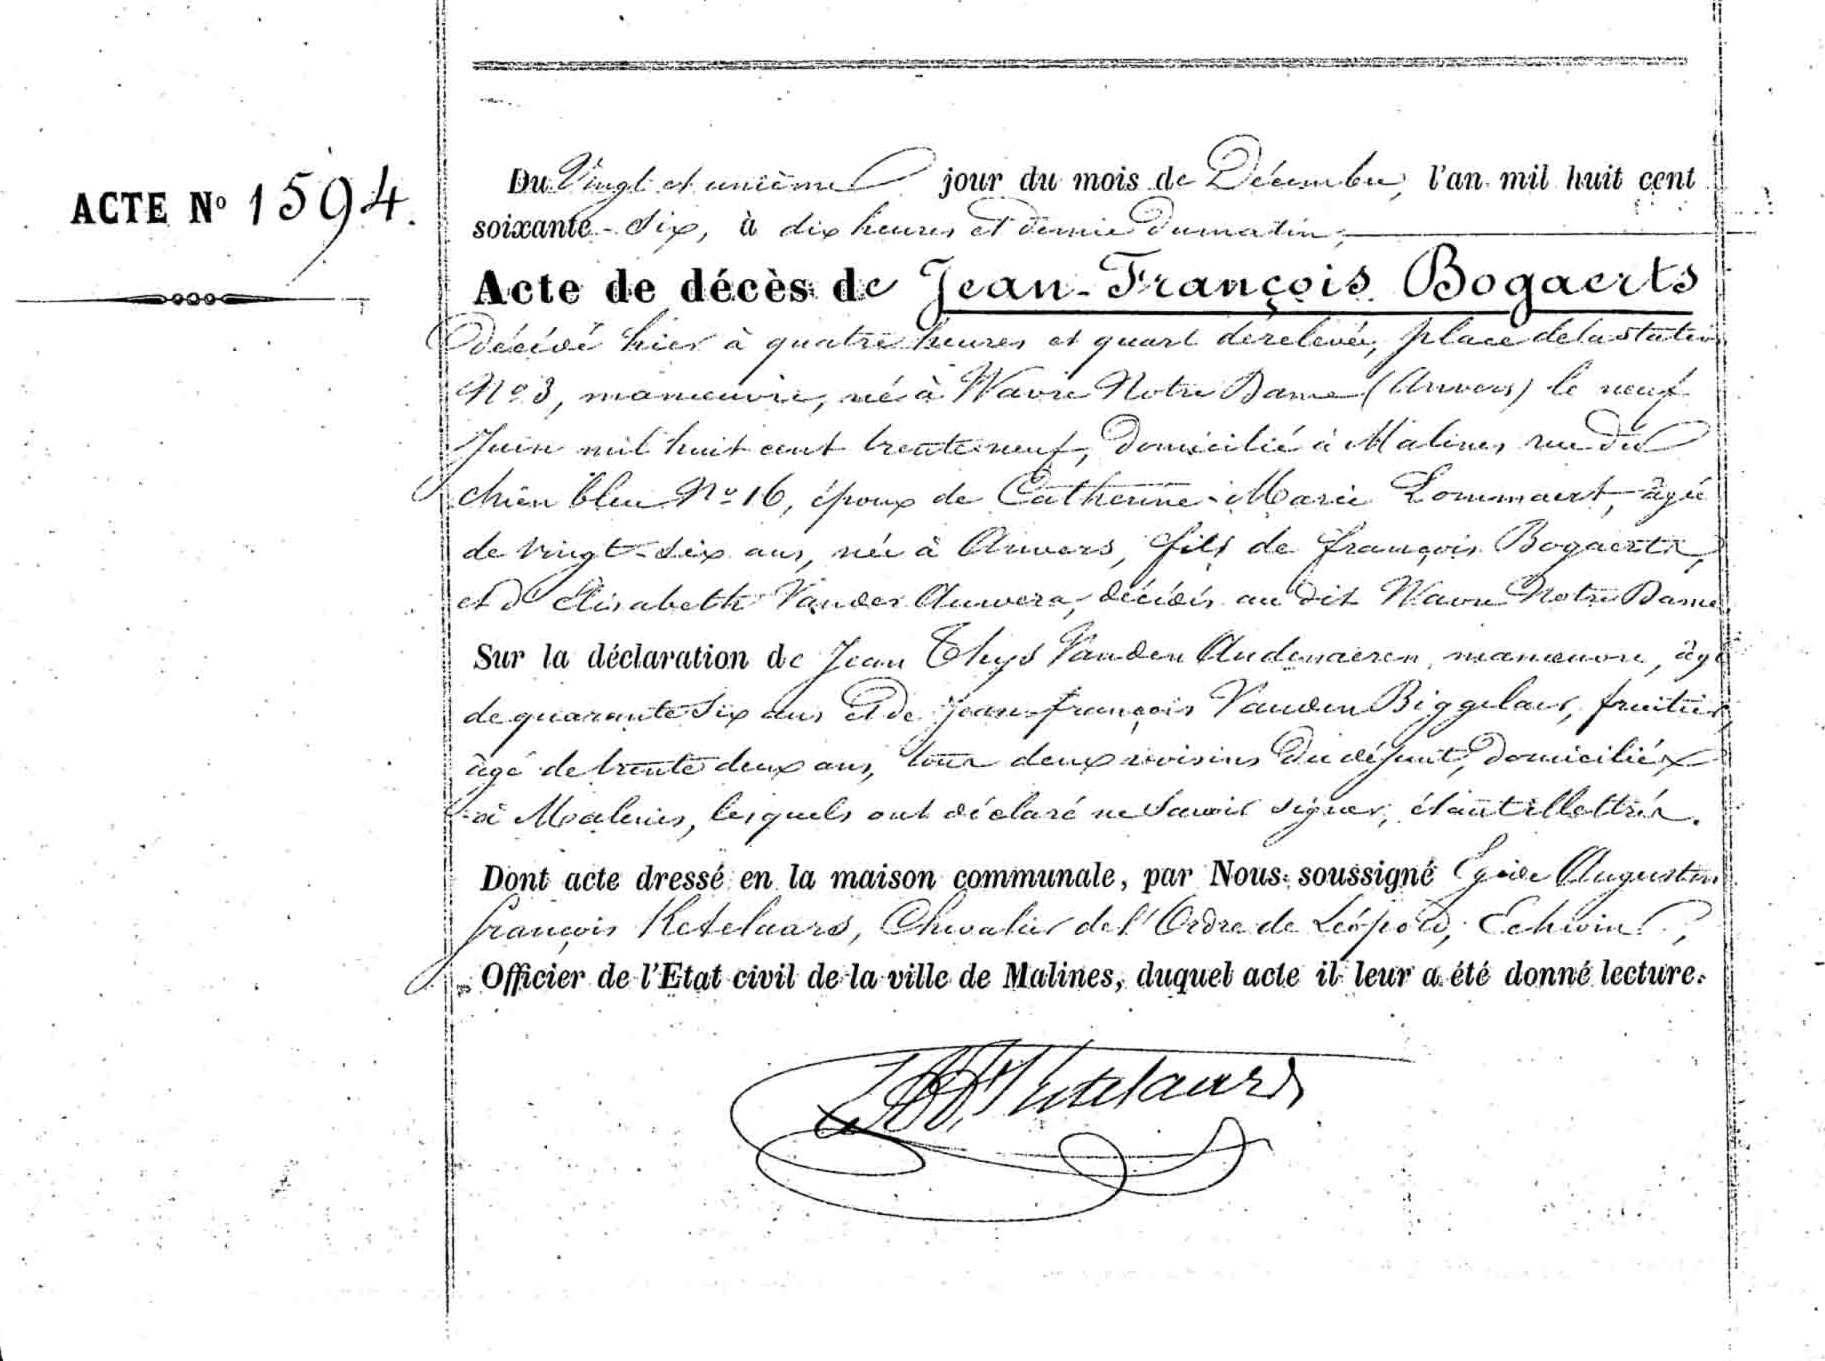 ACTE Nº 1594.
Du Vingt et unième jour du mois de Décembre, l'an mil huit cent
soixante-six, à dix heures et demie du matin,
Acte de décès de Jean-François Bogaerts
décédé hier à quatre heures et quart de relevée, place de la station
Nº 3, manœuvre, né à Wavre Notre Dame (Anvers) le neuf
Juin mil huit cent trente neuf, domicilié à Malines, rue du
chien bleu Nº 16, époux de Catherine-Marie Lommaert, âgée
de vingt-six ans, née à Anvers, fils de françois Bogaerts,
et d'Elisabeth Vander Auwera, décédés au dit Wavre Notre Dame
Sur la déclaration de Jean Thys Vanden Audenaeren, manœuvre, âgé
de quarante six ans et de Jean-françois Vanden Biggelaer, fruitier,
âgé de trente deux ans, tous deux voisins du défunt, domiciliés
à Malines, lesquels ont déclaré ne savoir signer, étant illettrés.
Dont acte dressé en la maison communale, par Nous soussigné Egide Augustin
françois Ketelaars, Chevalier de l'Ordre de Léopold, Echevin,
Officier de l'Etat civil de la ville de Malines, duquel acte il leur a été donné lecture.
Ketelaars